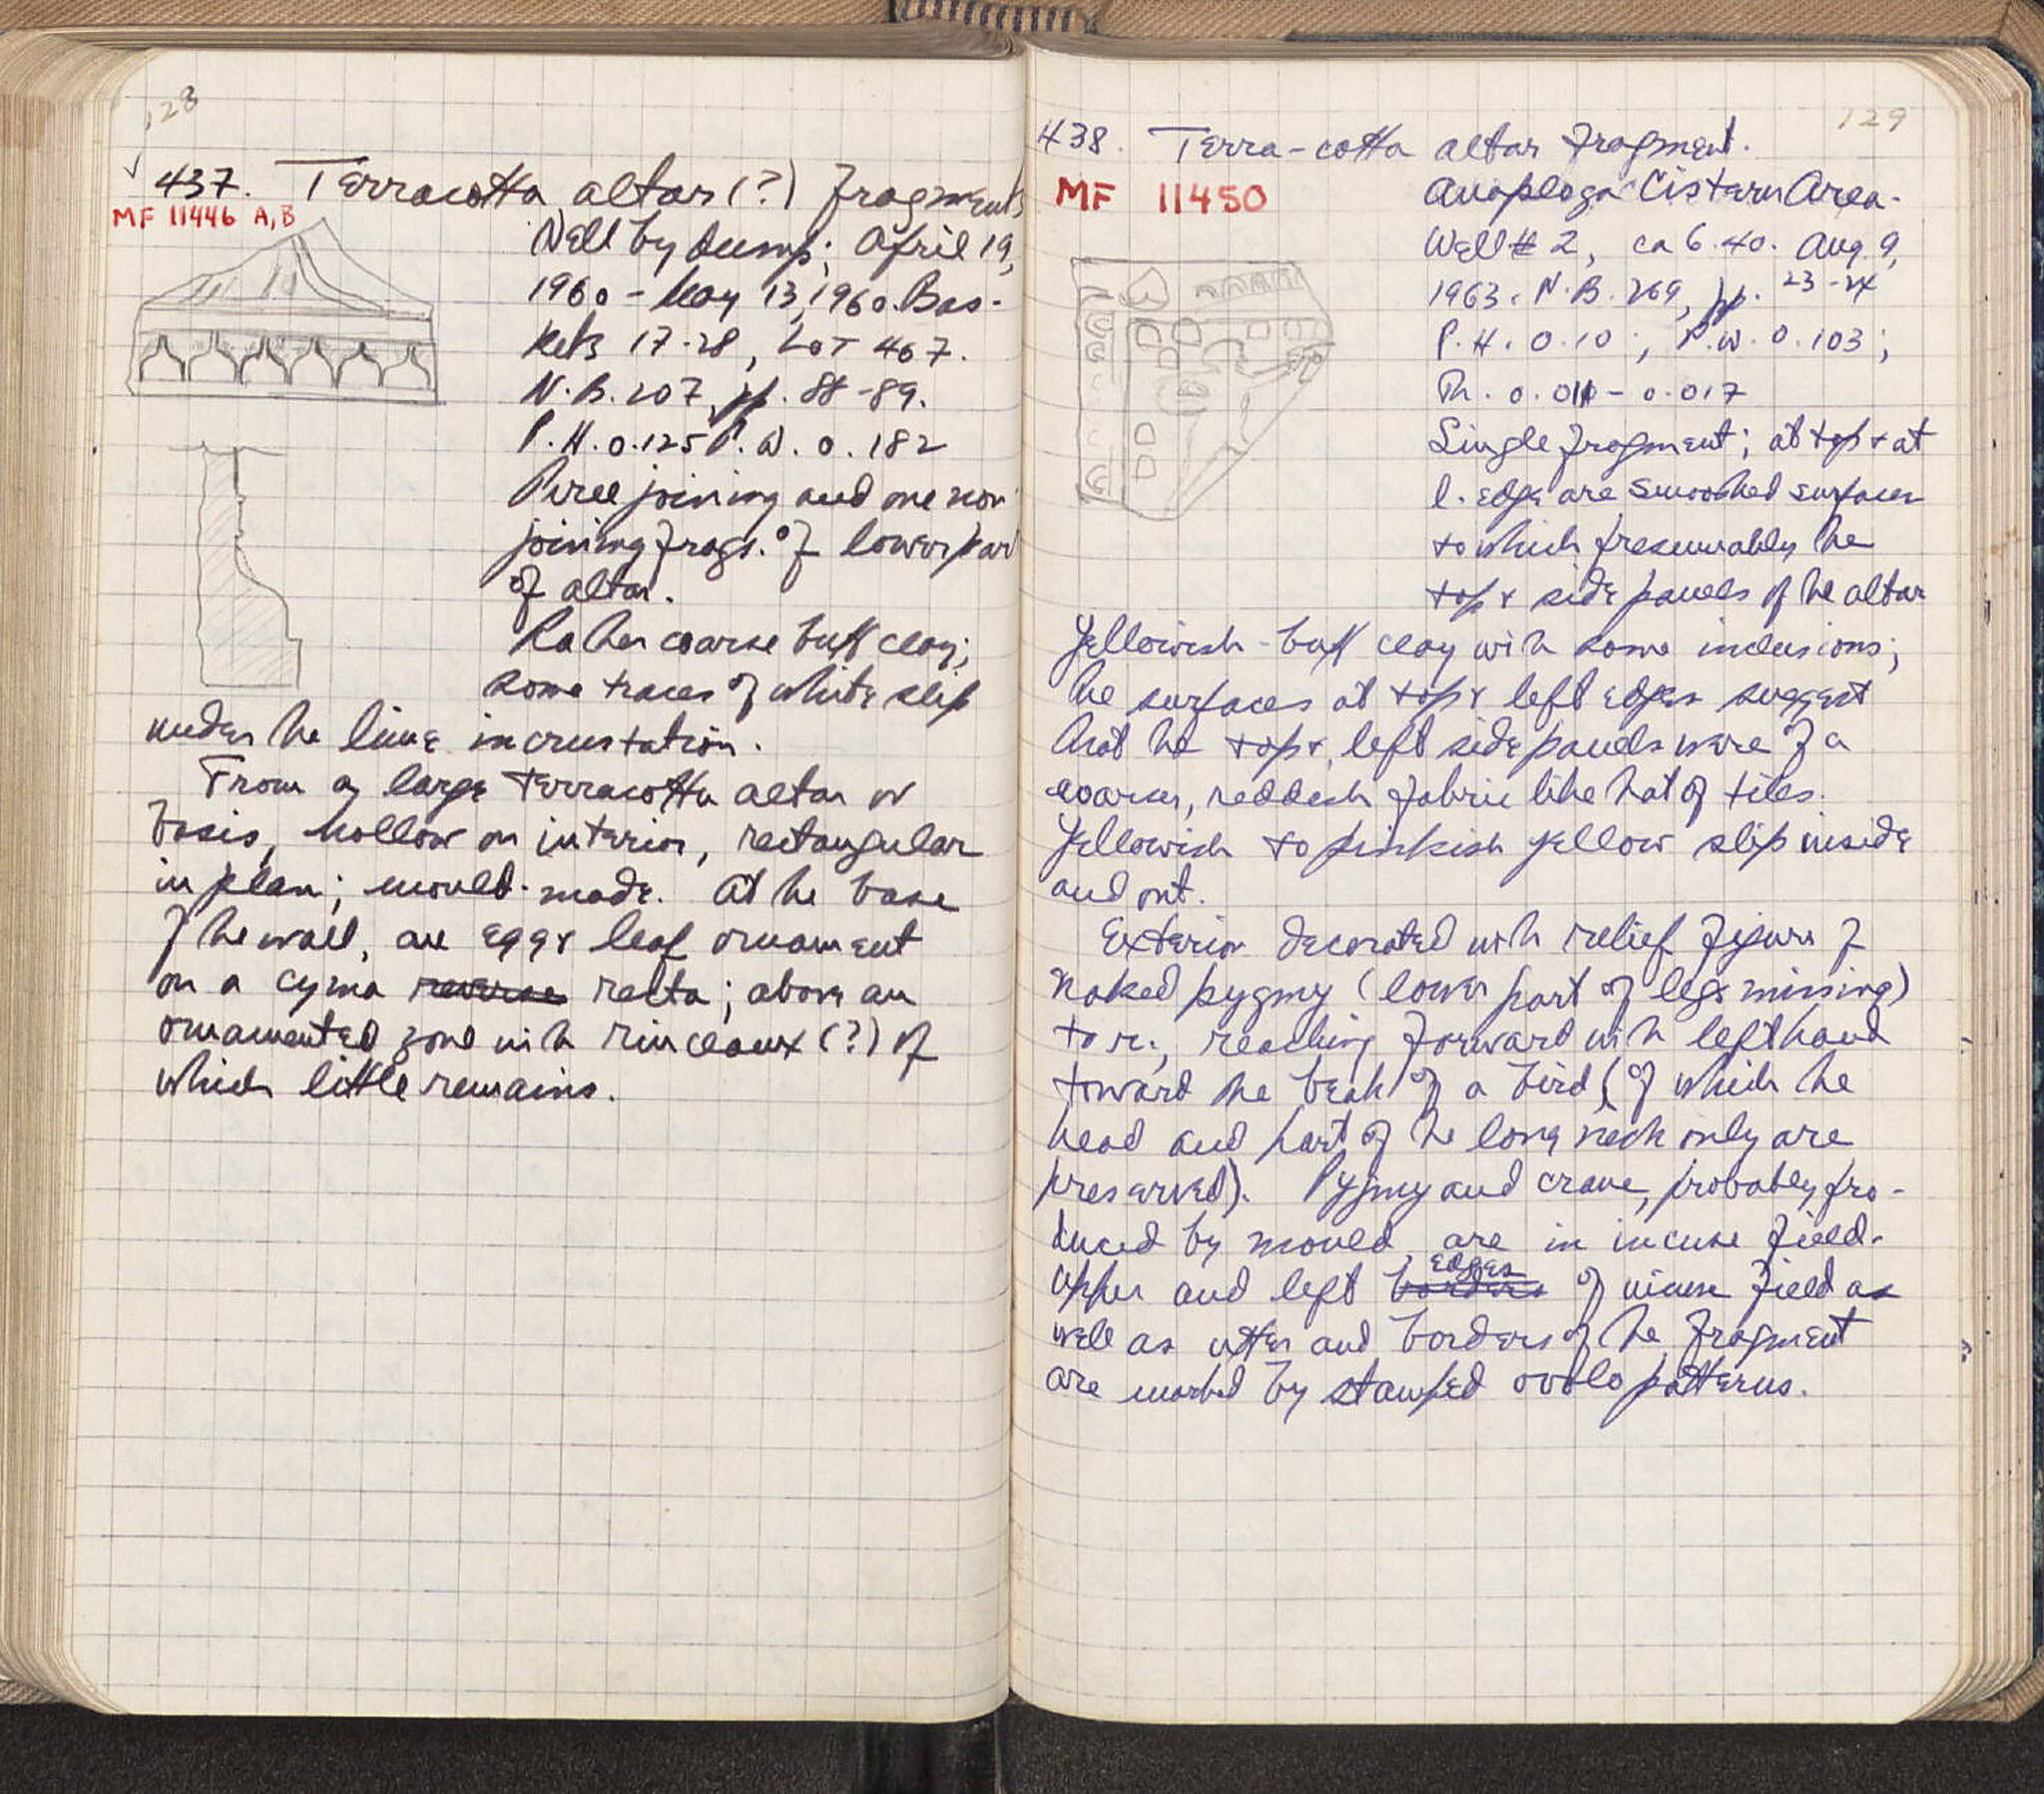 128
✓
437. Terracotta altar (?) fragments
MF 11446 A, B
Well by dump; April 19,
1960 - May 13, 1960. Bas-
kets 17-28, Lot 467.
N.B. 207, pp. 88-89.
P.H. 0.125 P.W. 0.182
Three joining and one non
joining frags. of lower part
of altar.
Rather coarse buff clay;
some traces of white slip
under the lime incrustation.
From a large terracotta altar or
basis, hollow on interior, rectangular
in plan; mould-made. At the base
of the wall, an egg & leaf ornament
on a cyma reverse recta; above an
ornamented zone with rinceaux (?) of
which little remains.
129
438. Terra-cotta altar fragment.
MF 11450
Anaploga Cistern Area.
Well # 2, ca 6.40. Aug. 9,
1963. N.B. 269, pp. 23-24
P.H. 0.10; P.W. 0.103;
Th. 0.011 - 0.017
Single fragment; at top & at
l. edge are smoothed surfaces
to which presumably the
top & side panels of the altar
Yellowish-buff clay with some inclusions;
the surfaces at top & left edges suggest
that the top & left side panels were of a
coarser, reddish fabric like that of tiles.
Yellowish to pinkish yellow slip inside
and out.
Exterior decorated with relief figure of
naked pygmy (lower part of legs missing)
to r., reaching forward with left hand
toward the beak of a bird (of which the
head and part of the long neck only are
preserved). Pygmy and crane, probably pro-
duced by mould, are in incuse field.
Upper and left borders edges of incuse field as
well as and borders of the fragment
are marked by stamped ovolo patterns.